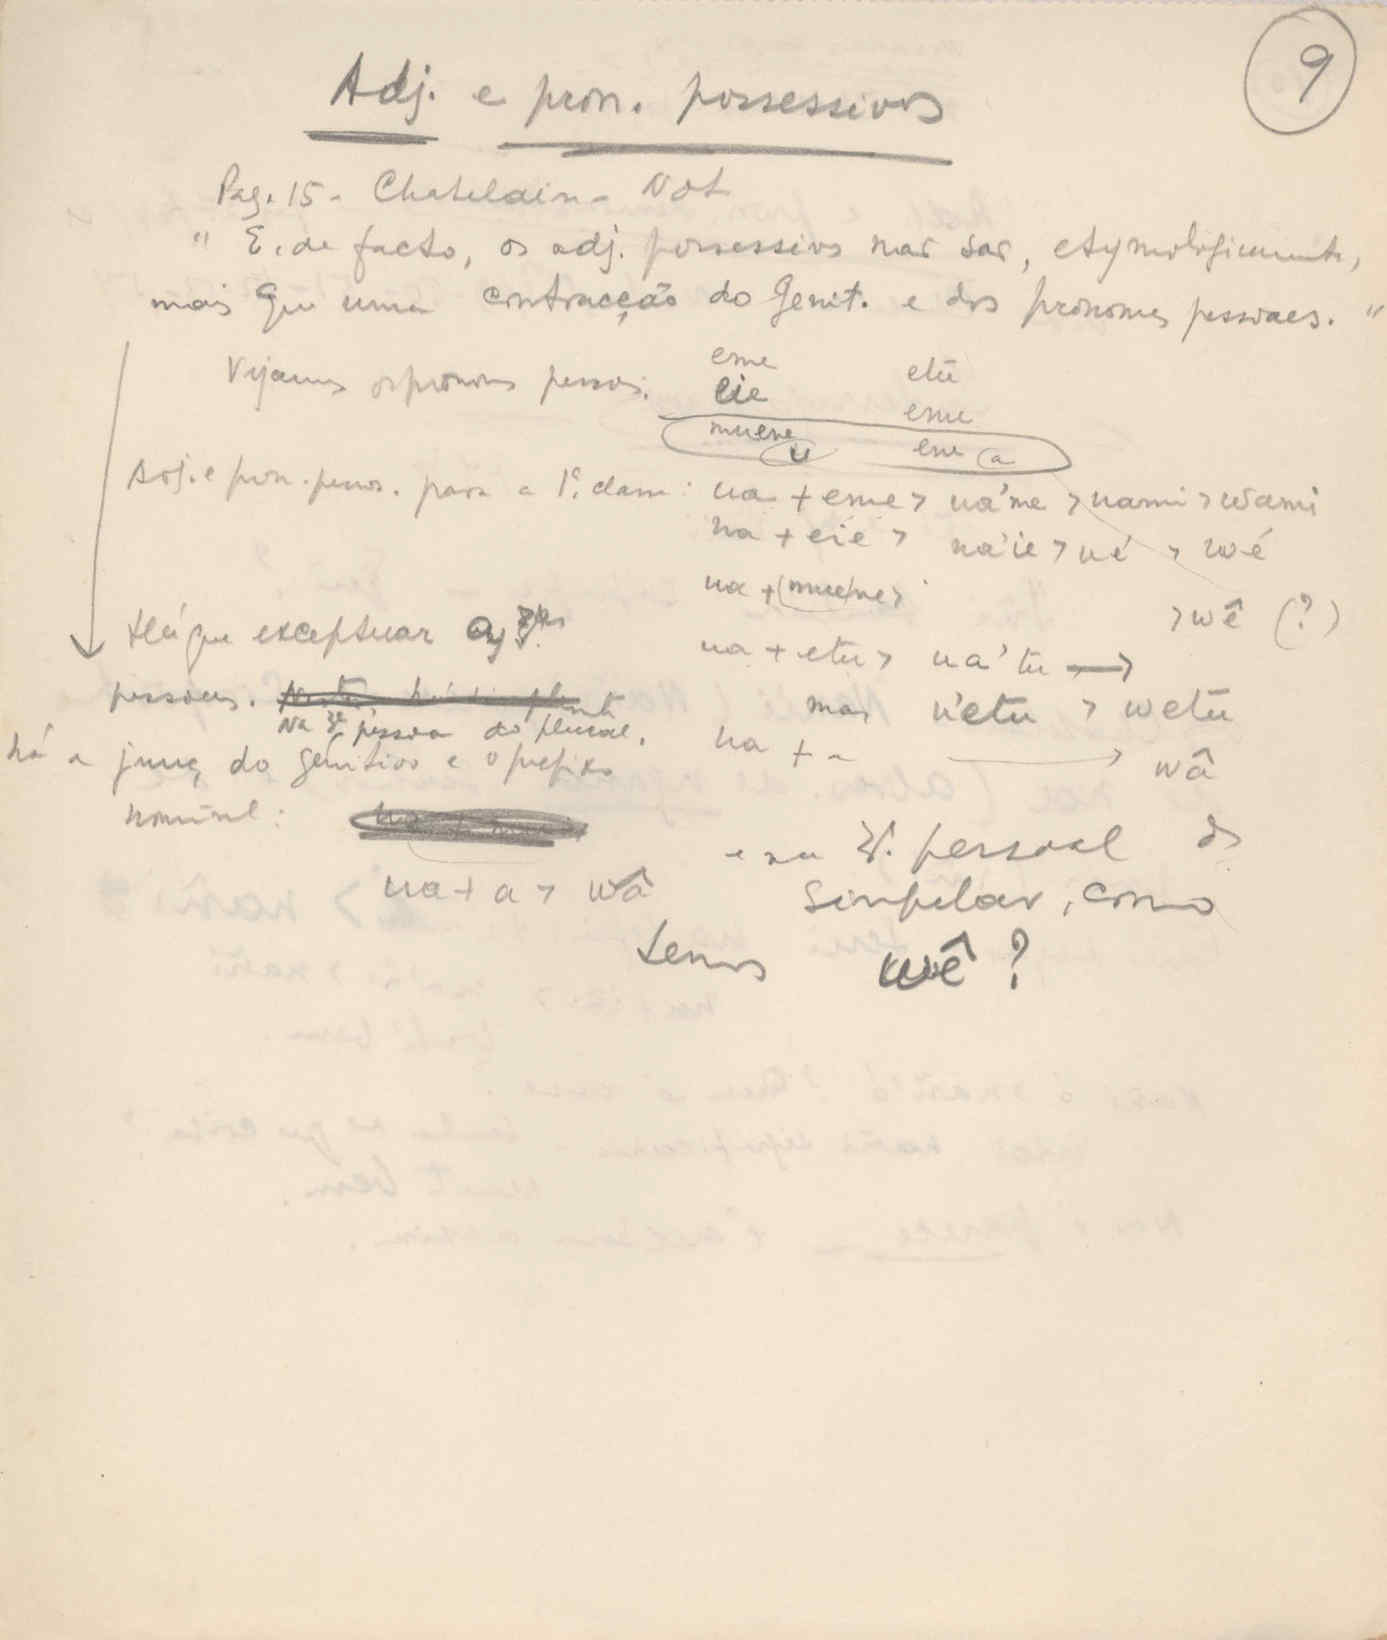 9
Adj. e pron. possessivos
Pag. 15 - Chatelain - Not
" E, de facto, os adj. possessivos nao sao, etymologicamente,
mais que uma contracção do Genit. e dos pronomes pessoaes. "
Vejamos os pronomes pessoais:
eme etū
eie enu
muene u ene a
Adj. e pron. poss. para a 1ª. classe: ua + eme > ua'me > uami > wami
ua + eie > ua'ie > ué > wé
ua + (muene) >
> wê (?)
ua + etu > ua'tu →
mas u'etu > wetū
ua + a → wâ
Há que exceptuar as 3as
pessoas.
Na 3ª pessoa do plural,
há a junç. do genitivo e o prefixo
nominal:
ua + a > wâ
e na 3ª. pessoal do
singular, como
temos wê ?